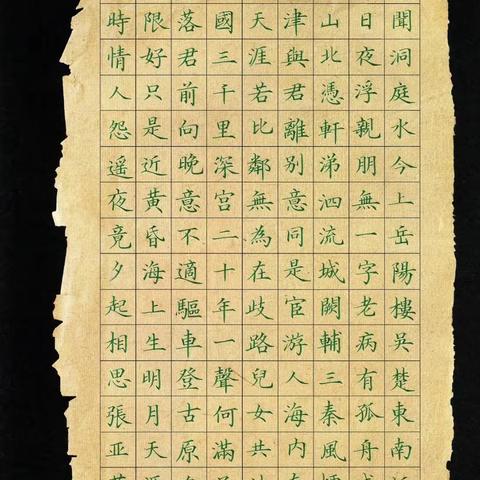 聞洞庭水今上岳陽樓吳楚東南
日夜浮親朋無一字老病有孤舟
山北憑軒涕泗流城闕輔三秦風
津與君離別意同是宦游人海內
天涯若比鄰無為在歧路兒女共
國三千里深宮二十年一聲何滿
落君前向晚意不適驅車登古原
限好只是近黃昏海上生明月天
時情人怨遥夜竟夕起相思張亚